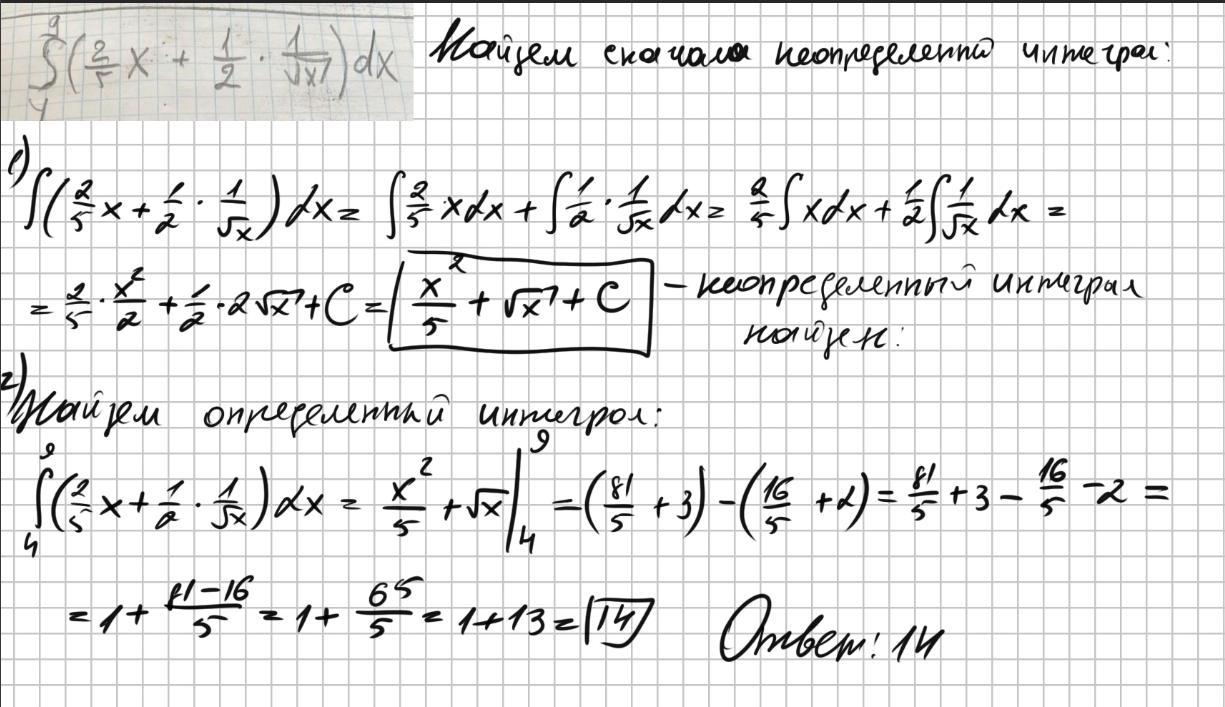 ∫₄⁹(2/5 x + 1/2 · 1/√x)dx Найдем сначала неопределенный интеграл:
1) ∫(2/5 x + 1/2 · 1/√x) dx = ∫ 2/5 · x dx + ∫ 1/2 · 1/√x dx = 2/5 ∫ x dx + 1/2 ∫ 1/√x dx =
= 2/5 · x²/2 + 1/2 · 2√x + C = x²/5 + √x + C - неопределенный интеграл
найден:
2) Найдем определенный интеграл:
∫₄⁹(2/5 x + 1/2 · 1/√x) dx = x²/5 + √x |₄⁹ = (81/5 + 3) - (16/5 + 2) = 81/5 + 3 - 16/5 - 2 =
= 1 + (81-16)/5 = 1 + 65/5 = 1 + 13 = 14 Ответ: 14